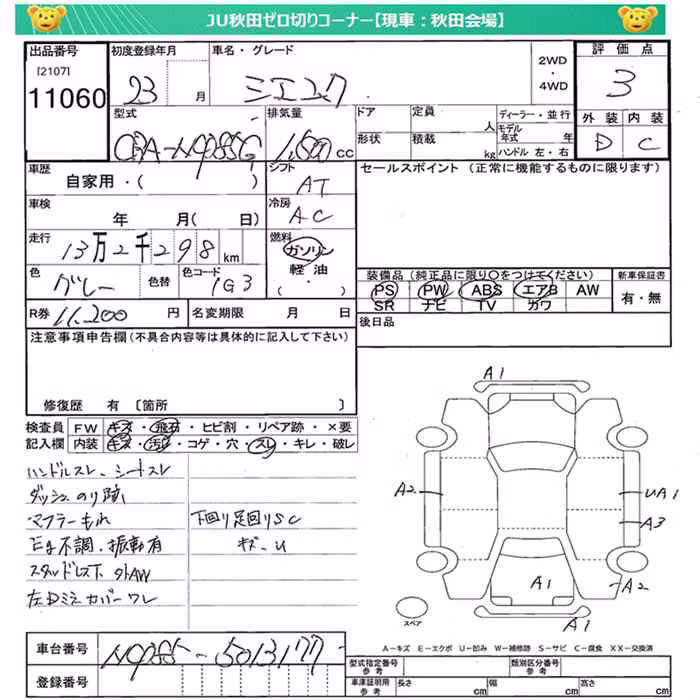 JU秋田ゼロ切りコーナー【現車：秋田会場】
出品番号 初度登録年月 車名・グレード 2WD・4WD 評価点
[2107]
11060 23 月 シエンタ 3
型式 排気量 ドア 定員 人 ディーラー・並行 外装 内装
CBA-NCP85G 1,500 CC 形状 積載 kg モデル年式 年 ハンドル 左・右 D C
車歴 シフト セールスポイント (正常に機能するものに限ります)
自家用・( ) AT
車検 冷房
年 月( 日) AC
走行 燃料
13万2千298 km ガソリン
色 色替 色コード 軽油 装備品 (純正品に限り○をつけてください) 新車保証書
グレー 1G3 ・ ( ) PS PW ABS エアB AW 有・無
SR ナビ TV カワ
R券 11,200 円 名変期限 月 日 後日品
注意事項申告欄(不具合内容等は具体的に記入して下さい)
修復歴 有 〔箇所 〕
検査員 FW キズ・飛石・ヒビ割・リペア跡・×要
記入欄 内装 キズ・汚れ・コゲ・穴・スレ・キレ・破レ
ハンドルスレ、シートスレ
ダッシュのり跡
マフラーもれ 下回り足回りSC
E/g不調・振動有 キズ・U
スタッドレス下 外AW
左Dミラーカバーワレ
A1
A2 UA1
A3
A1 A2
スペア A1
A-キズ E-エクボ U-凹み W-補修跡 S-サビ C-腐食 XX-交換済
車台番号 NCP85-5013177
登録番号
型式指定番号 参考 類別区分番号 参考
車庫証明用 参考 長さ cm 幅 cm 高さ cm